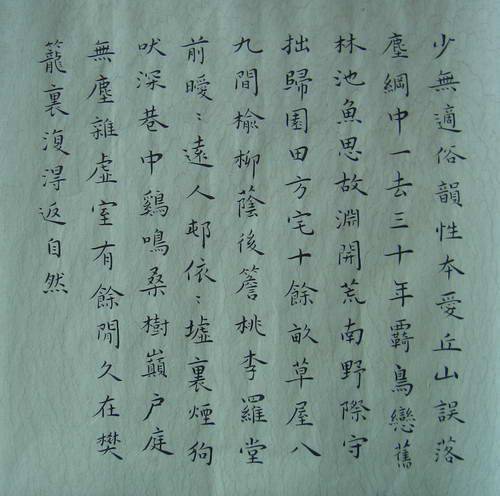 少無適俗韻性本愛丘山誤落
塵綱中一去三十年覉鳥戀舊
林池魚思故淵開荒南野際守
拙歸園田方宅十餘畝草屋八
九間榆柳蔭後簷桃李羅堂
前曖〻遠人邨依〻墟裏煙狗
吠深巷中鷄鳴桑樹巔户庭
無塵雜虛室有餘閒久在樊
籠裏復得返自然